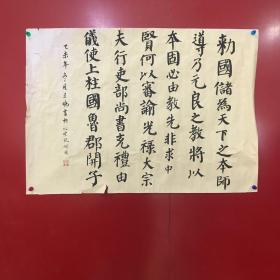 勅國儲為天下之本師
導乃元良之教將以
本固必由教先非求中
賢何以審諭光禄大
夫行吏部尚書充禮
儀使上柱國魯郡開
乙未年